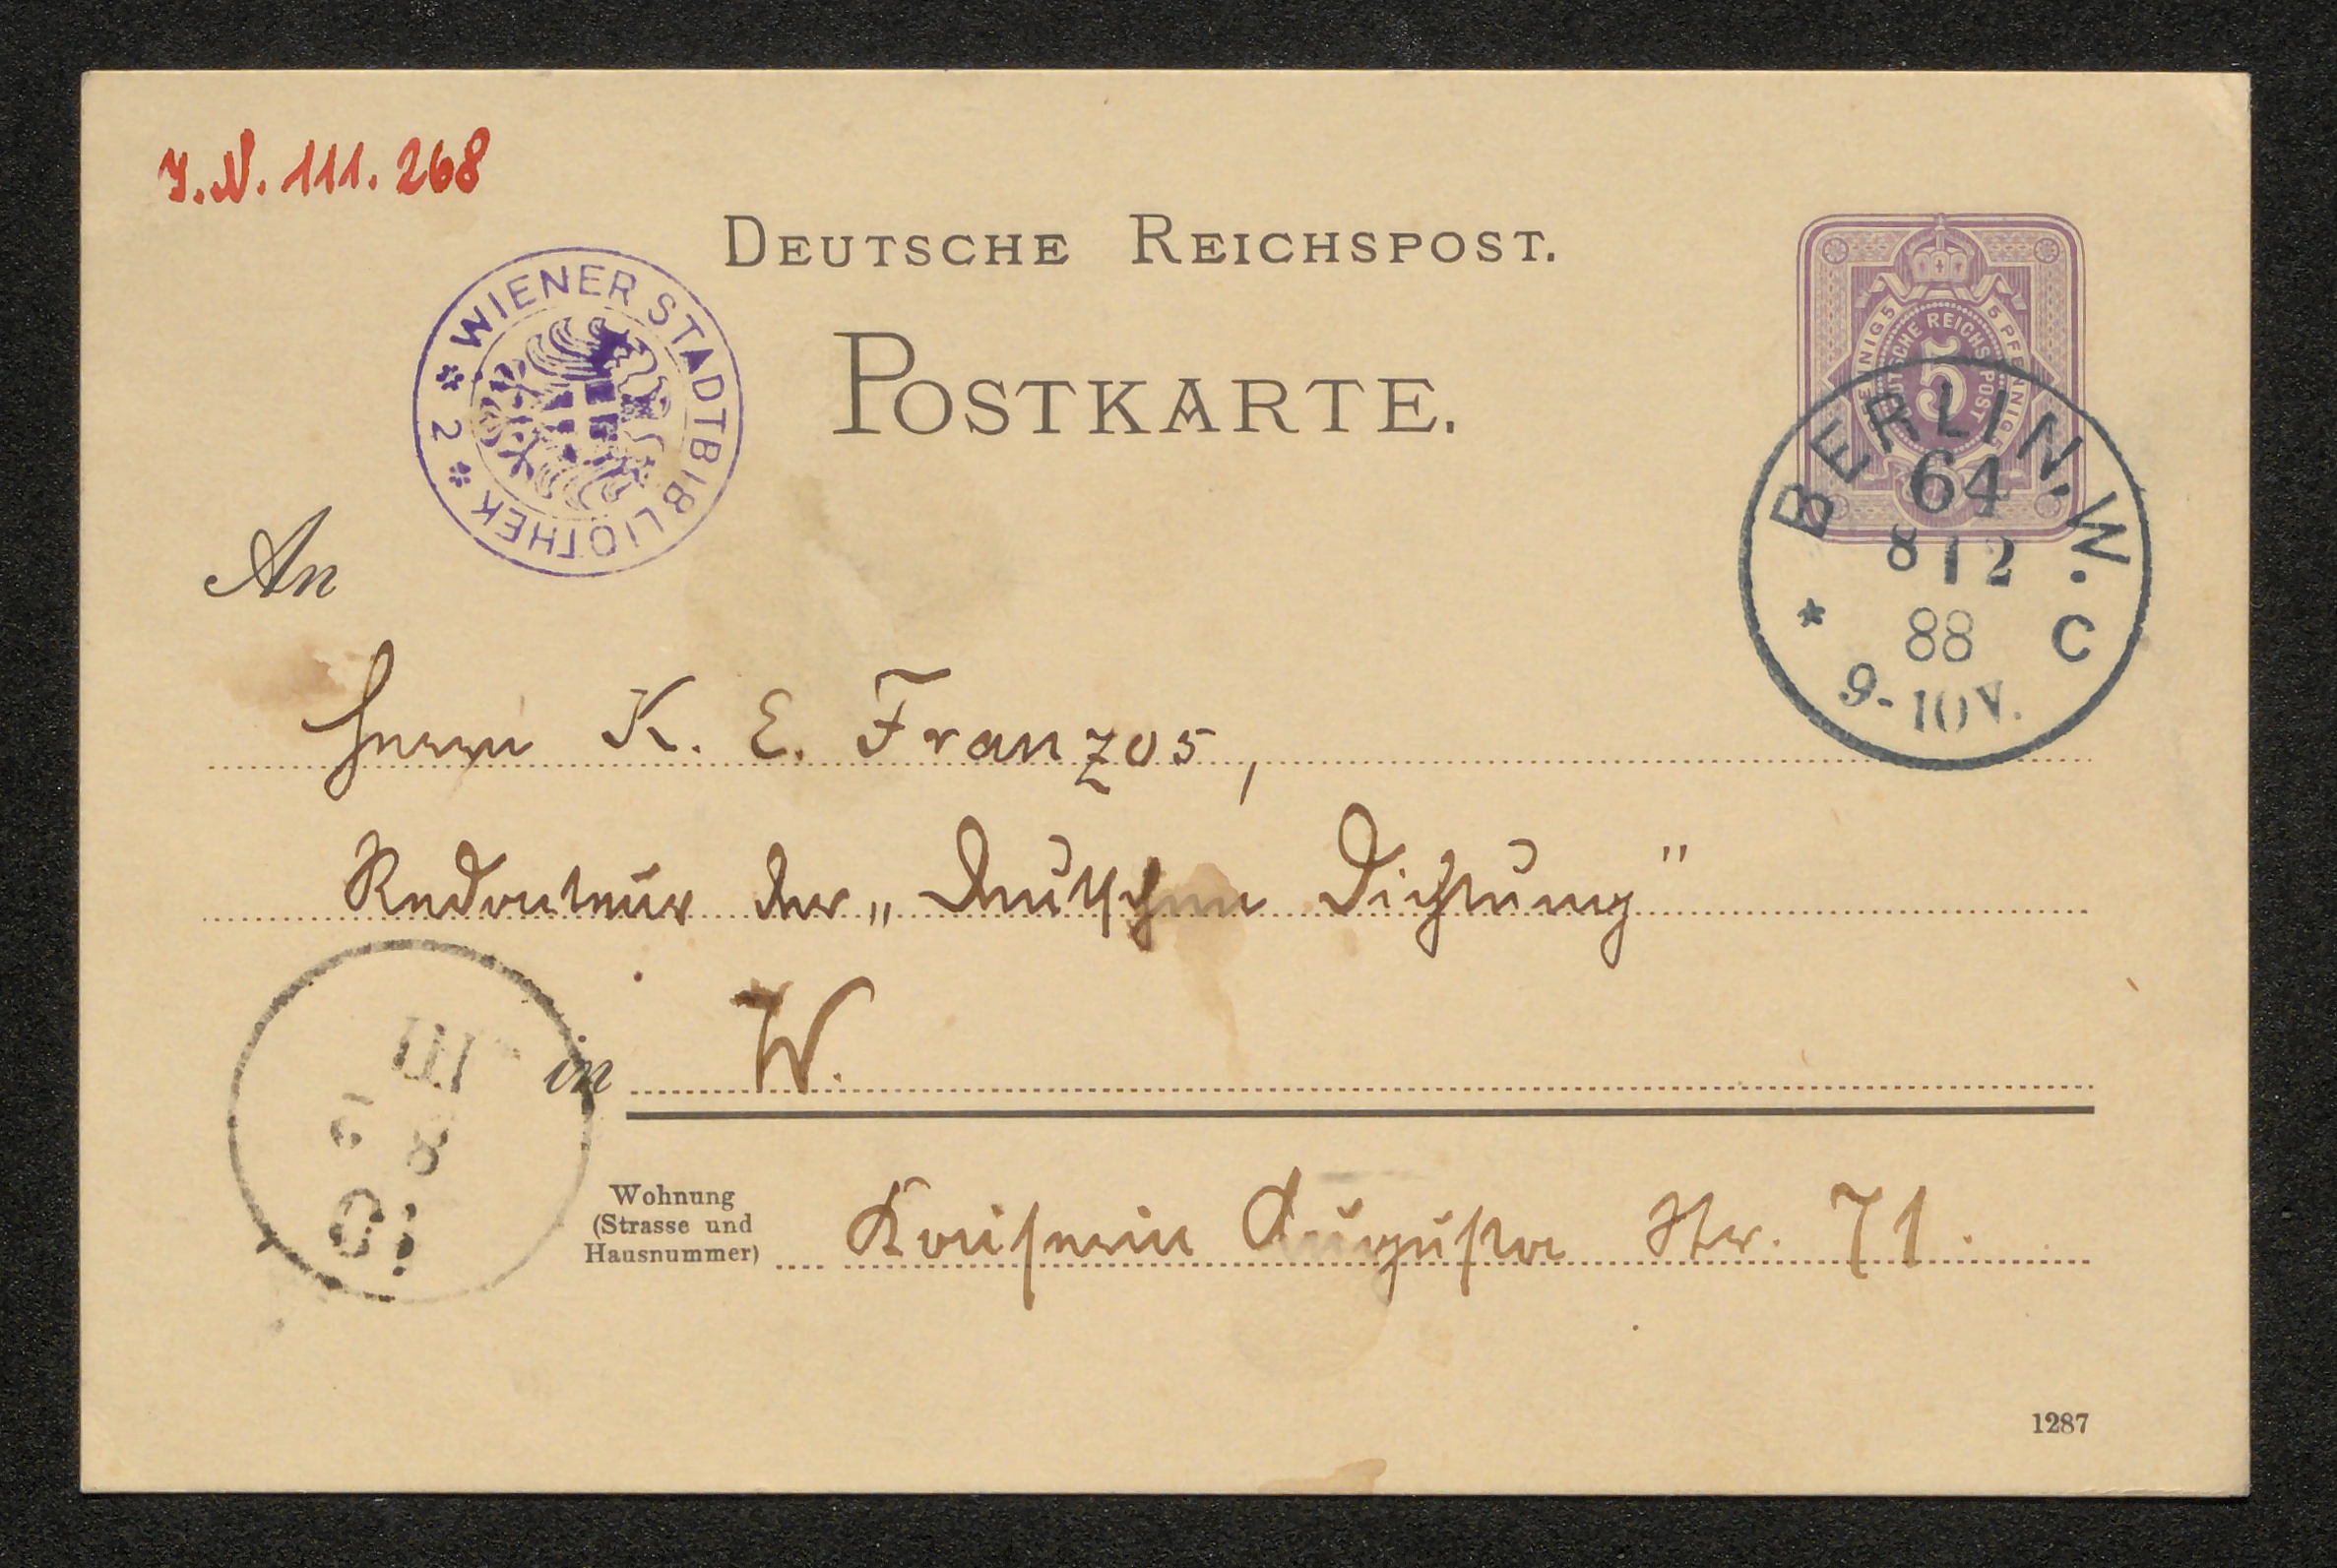 J.N. 111.268
DEUTSCHE REICHSPOST.
POSTKARTE.
* WIENER STADTBIBLIOTHEK * 2
PFENNIG 5 5 PFENNIG
DEUTSCHE REICHSPOST
5
BERLIN, W.
64
8 12
88
* C
9-10V.
An
Herrn K. E. Franzos,
Redacteur der „Deutschen Dichtung"
in W.
Wohnung
(Strasse und
Hausnummer)
Kaiserin Augusta Str. 71.
1287